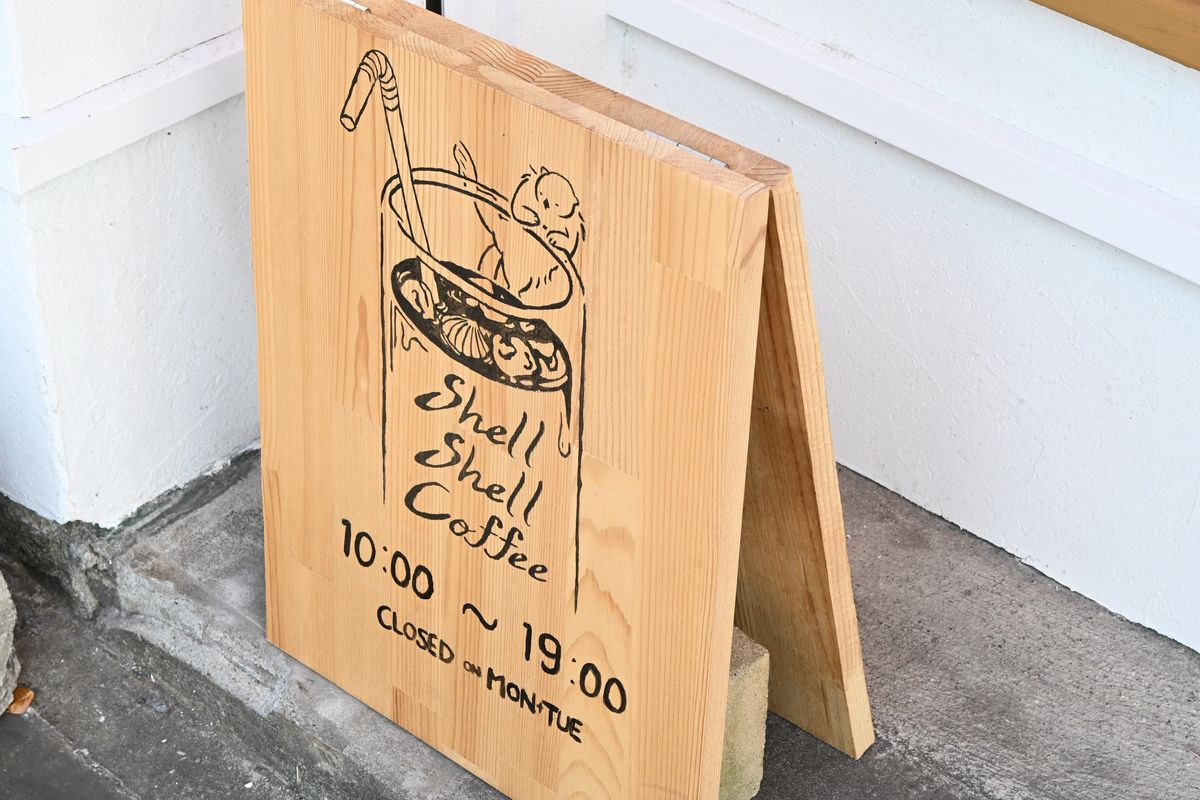 Shell
Shell
Coffee
10:00 ~ 19:00
CLOSED ON MON・TUE